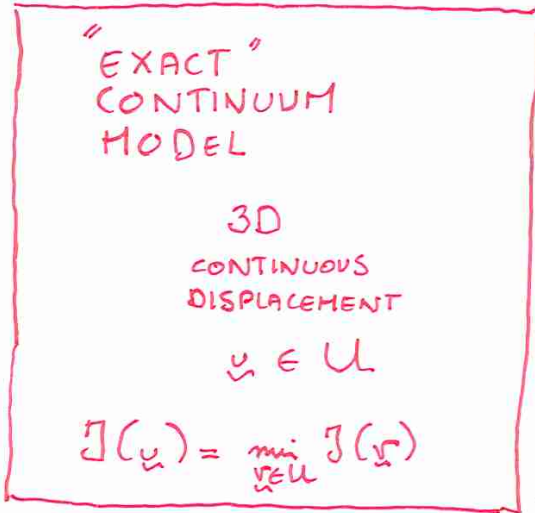 "EXACT"
CONTINUUM
MODEL
3D
CONTINUOUS
DISPLACEMENT
u ∈ U
J(u) = min J(v)
v∈U